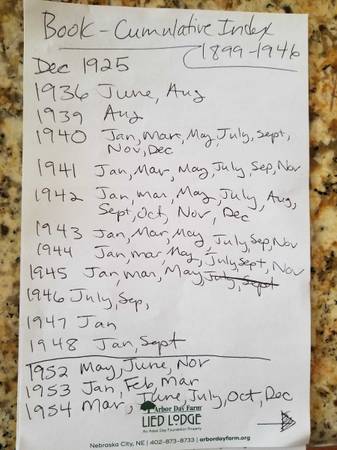 Book - Cumulative Index
1899-1946
Dec 1925
1936 June, Aug
1939 Aug
1940 Jan, Mar, May, July, Sept,
Nov, Dec
1941 Jan, Mar, May, July, Sep, Nov
1942 Jan, Mar, May, July, Aug,
Sept, Oct, Nov, Dec
1943 Jan, Mar, May, July, Sep, Nov
1944 Jan, mar, May, July, Sept, Nov
1945 Jan, mar, May, July, Sept
1946 July, Sep,
1947 Jan
1948 Jan, Sept
1952 May, June, Nov
1953 Jan, Feb, Mar
1954 Mar, June, July, Oct, Dec
Arbor Day Farm
LIED LODGE
An Arbor Day Foundation Property
Nebraska City, NE | 402-873-8733 | arbordayfarm.org